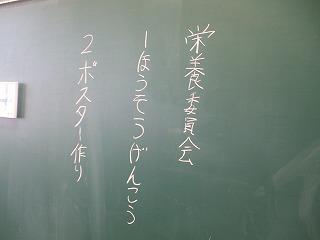 栄養委員会
1ほうそうげんこう
2ポスター作り